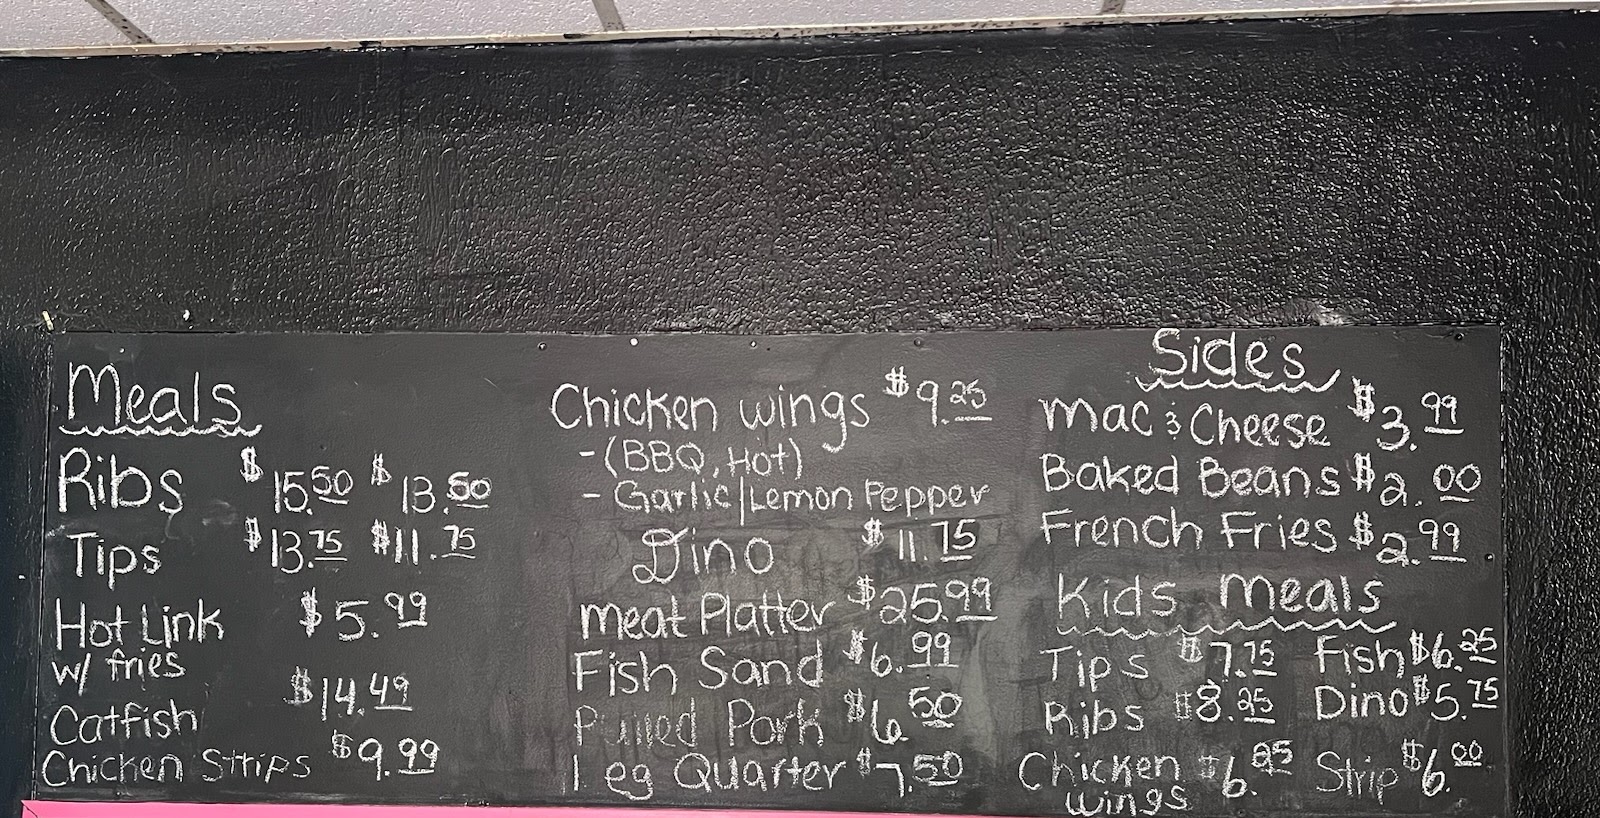 Meals
Ribs $15.50 $13.50
Tips $13.75 $11.75
Hot Link $5.99
w/ fries
Catfish $14.49
Chicken Strips $9.99
Chicken wings $9.25
- (BBQ, Hot)
- Garlic|Lemon Pepper
Dino $11.75
meat Platter $25.99
Fish Sand $6.99
Pulled Pork $6.50
Leg Quarter $7.50
Sides
mac & Cheese $3.99
Baked Beans $2.00
French Fries $2.99
Kids meals
Tips $7.75 Fish $6.25
Ribs $8.25 Dino $5.75
Chicken $6.25 Strip $6.00
wings